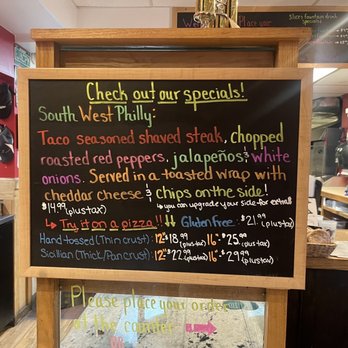 Check out our specials!
South West Philly:
Taco seasoned shaved steak, chopped
roasted red peppers, jalapeños & white
onions. Served in a toasted wrap with
cheddar cheese & chips on the side!
$14.99 (plus tax) ↳ you can upgrade your side for extra!!
↳ Try it on a pizza!! ↓↓ Gluten free: $21.99 (plus tax)
Hand-tossed (Thin crust): 12" $18.99 (plus tax) 16" $25.99 (plus tax)
Sicilian (Thick/Pan Crust): 12" $22.99 (plus tax) 16" $29.99 (plus tax)
Please place your order
at the counter
Place your